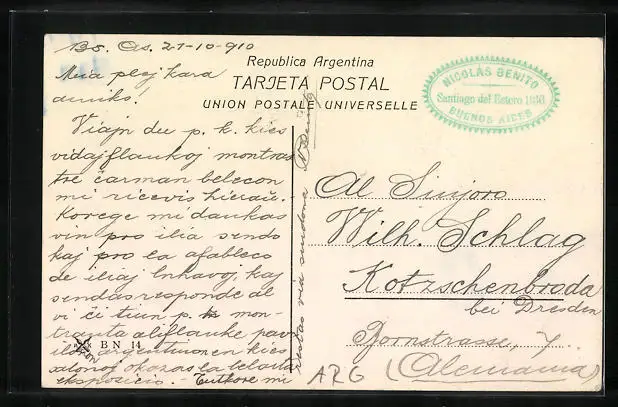 Bs. As. 21-10-910
Mia plej kara
amiko!
Viajn du p. k. kies
vidajflankoj montras
tre ĉarman belecon
mi ricevis hieraŭ.
Korege mi dankas
vin pro ilia sendo
kaj pro la afableco
de iliaj enhavoj, kaj
sendas responde al
vi ĉi tiun p. k mon-
tranta aliflanke pavi
ilon argentinan en kies
salonoj okazas la belarta
ekspozicio. - Tutkore mi
restas via samideano
N Benito
Republica Argentina
TARJETA POSTAL
UNION POSTALE UNIVERSELLE
NICOLÁS BENITO
Santiago del Estero
BUENOS AIRES
Al Sinjoro
Wilh. Schlag
Kotzschenbroda
bei Dresden
Bornstrasse, 7.
(Alemania)
BN 14
ARG